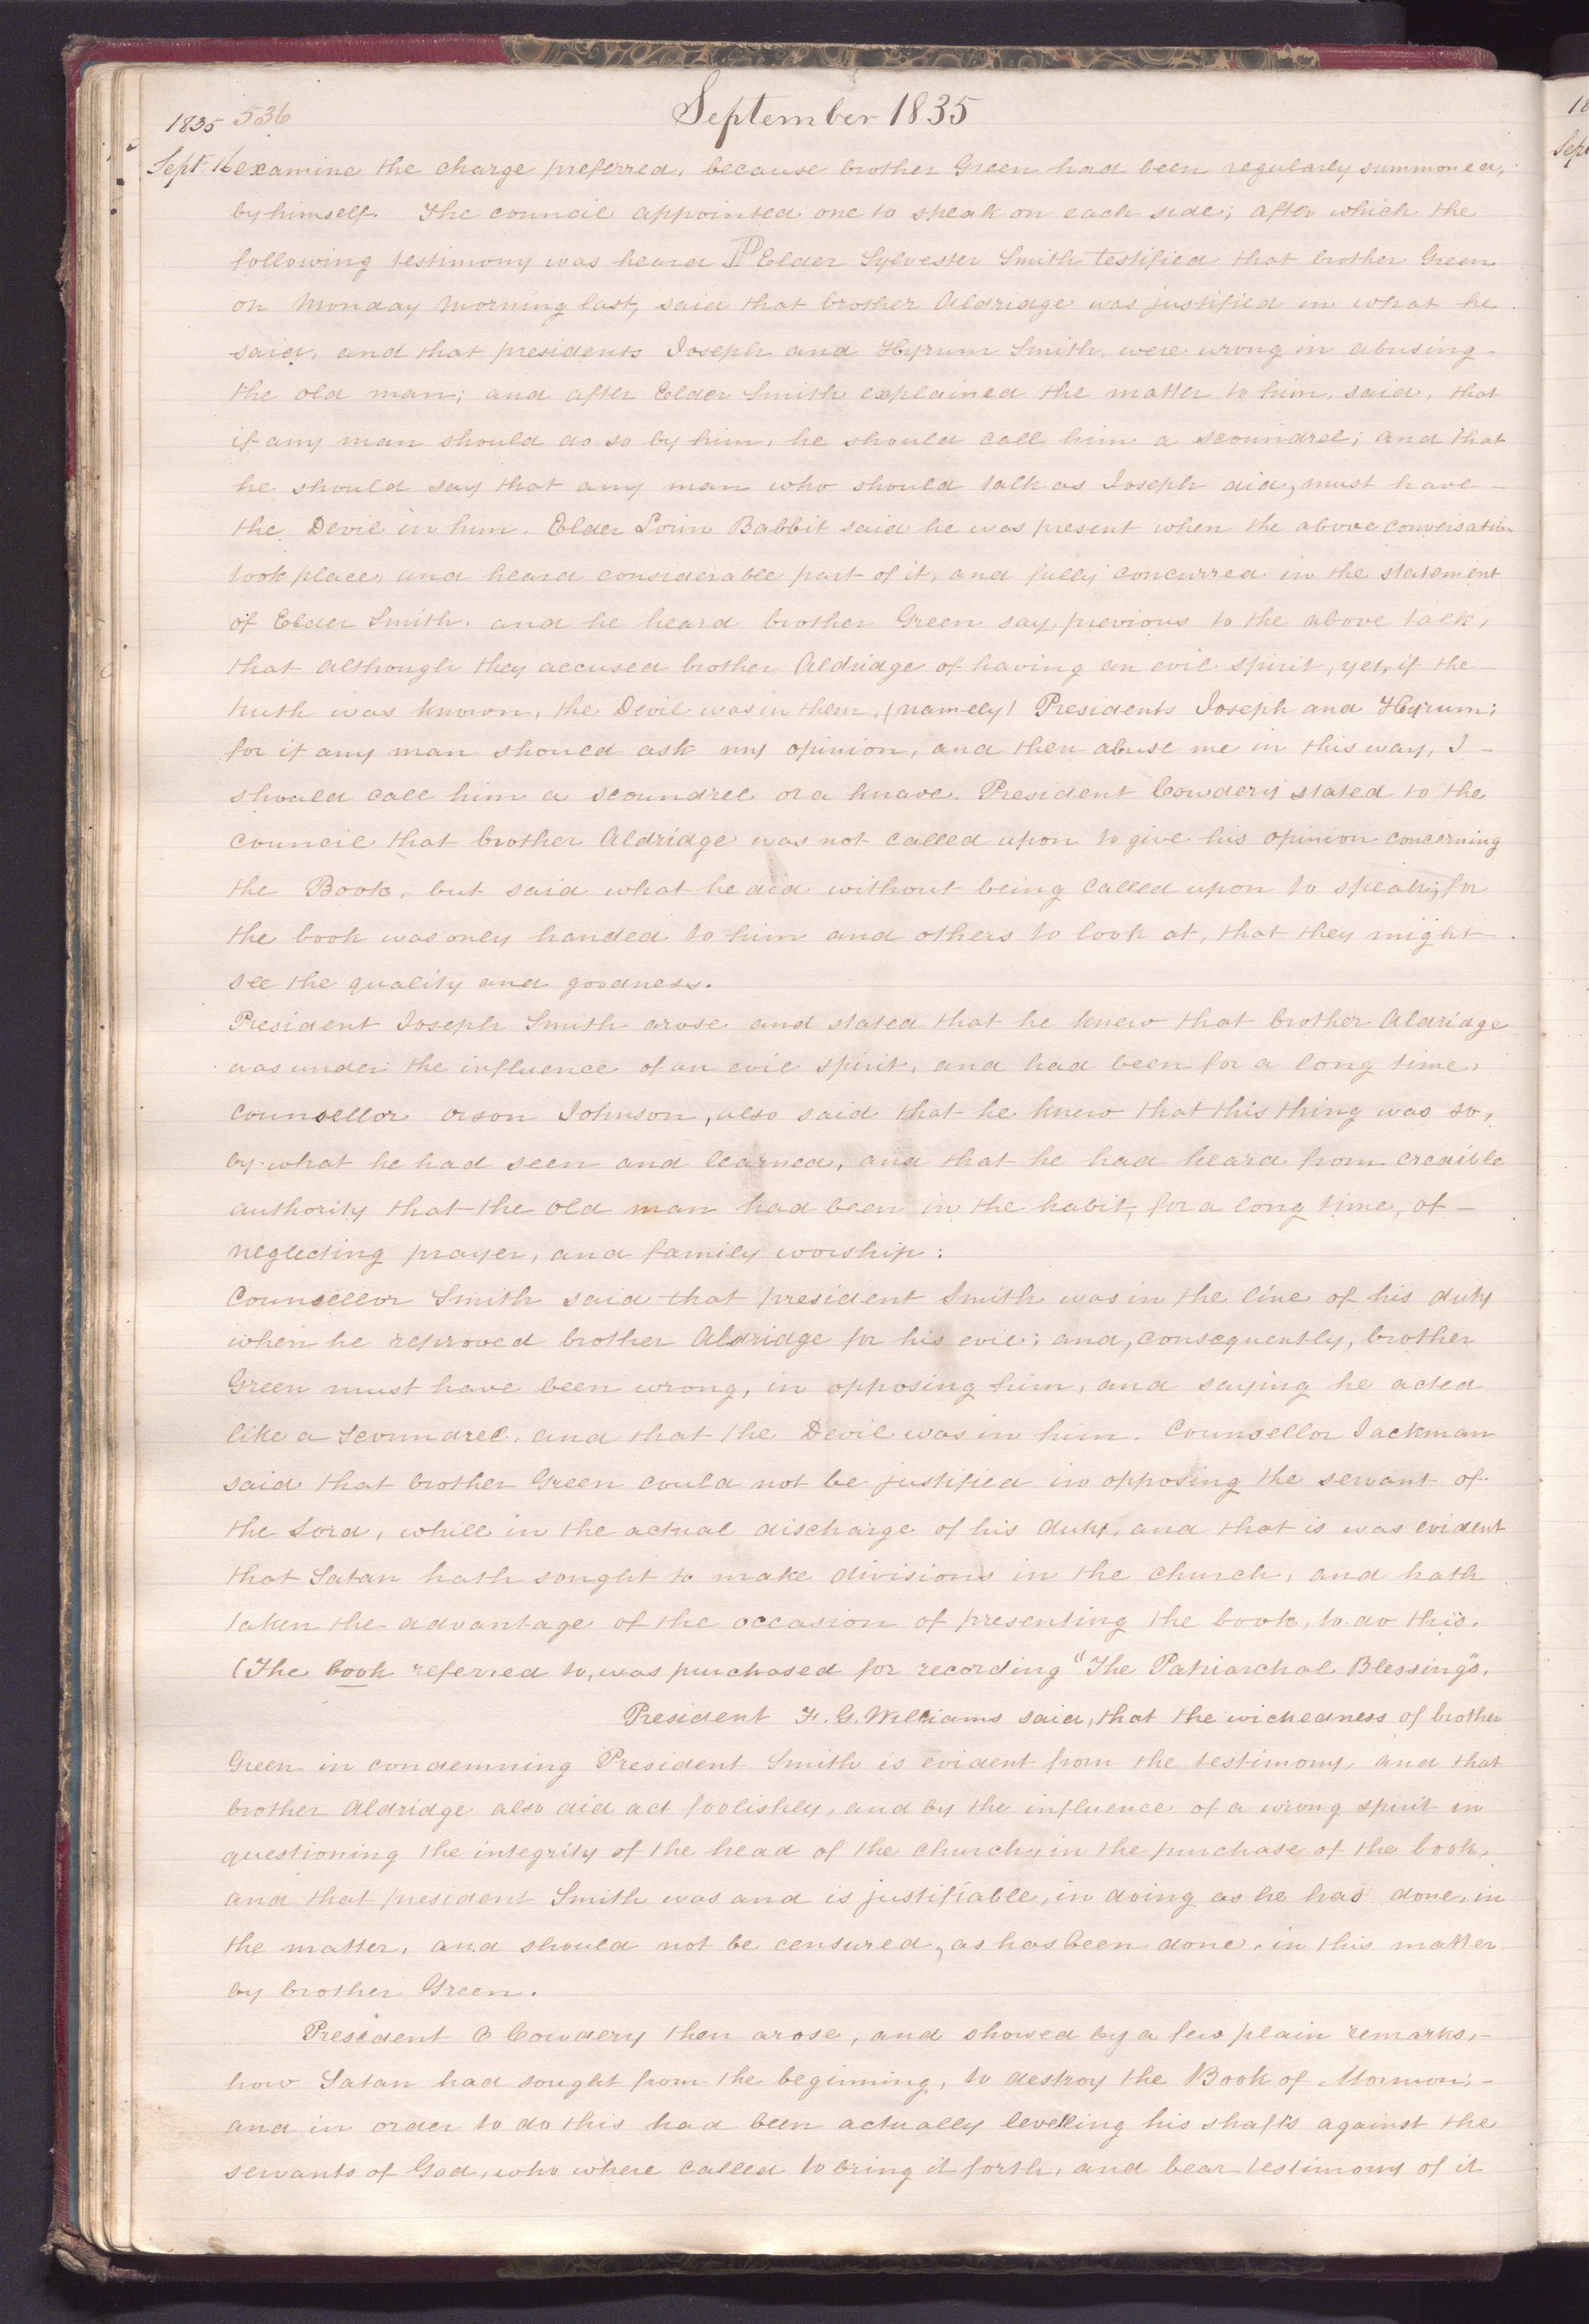 September 1835
1835 536
Sept. 16 examine the charge preferred, because brother Green had been regularly summoned,
by himself. The council appointed one to speak on each side; after which the
following testimony was heard Elder Sylvester Smith testified that brother Green
on Monday morning last, said that brother Aldridge was justified in what he
said, and that presidents Joseph and Hyrum Smith, were wrong in abusing
the old man; and after Elder Smith explained the matter to him, said, that
if any man should do so by him, he should call him a scoundrel; and that
he should say that any man who should talk as Joseph did, must have
the Devil in him. Elder Lorin Babbit said he was present when the above conversation
took place, and heard considerable part of it, and fully concurred in the statement
of Elder Smith. and he heard brother Green say, previous to the above talk,
that although they accused brother Aldridge of having an evil spirit, yet, if the
truth was known, the Devil was in them, (namely) Presidents Joseph and Hyrum;
for if any man should ask my opinion, and then abuse me in this way, I
should call him a scoundrel or a knave. President Cowdery stated to the
council that brother Aldridge was not called upon to give his opinion concerning
the Book, but said what he did without being called upon to speak; for
the book was only handed to him and others to look at, that they might
see the quality and goodness.
President Joseph Smith arose and stated that he knew that brother Aldridge
was under the influence of an evil spirit, and had been for a long time,
Counsellor Orson Johnson, also said that he knew that this thing was so,
by what he had seen and learned, and that he had heard from credible
authority that the old man had been in the habit, for a long time, of
neglecting prayer, and family worship:
Counsellor Smith said that president Smith was in the line of his duty
when he reproved brother Aldridge for his evil; and, consequently, brother
Green must have been wrong, in opposing him, and saying he acted
like a scoundrel, and that the Devil was in him. Counsellor Jackman
said that brother Green could not be justified in opposing the servant of
the Lord, while in the actual discharge of his duty, and that is was evident
that Satan hath sought to make divisions in the church, and hath
taken the advantage of the occasion of presenting the book, to do this.
(The book referred to, was purchased for recording "The Patriarchal Blessings.
President F. G. Williams said, that the wickedness of brother
Green in condemning President Smith is evident from the testimony, and that
brother Aldridge also did act foolishly, and by the influence of a wrong spirit in
questioning the integrity of the head of the church, in the purchase of the book,
and that president Smith was and is justifiable, in doing as he has done, in
the matter, and should not be censured, as has been done, in this matter
by brother Green.
President O Cowdery then arose, and showed by a few plain remarks,
how Satan had sought from the beginning, to destroy the Book of Mormon;
and in order to do this had been actually levelling his shafts against the
servants of God, who where called to bring it forth, and bear testimony of it
18
Sept